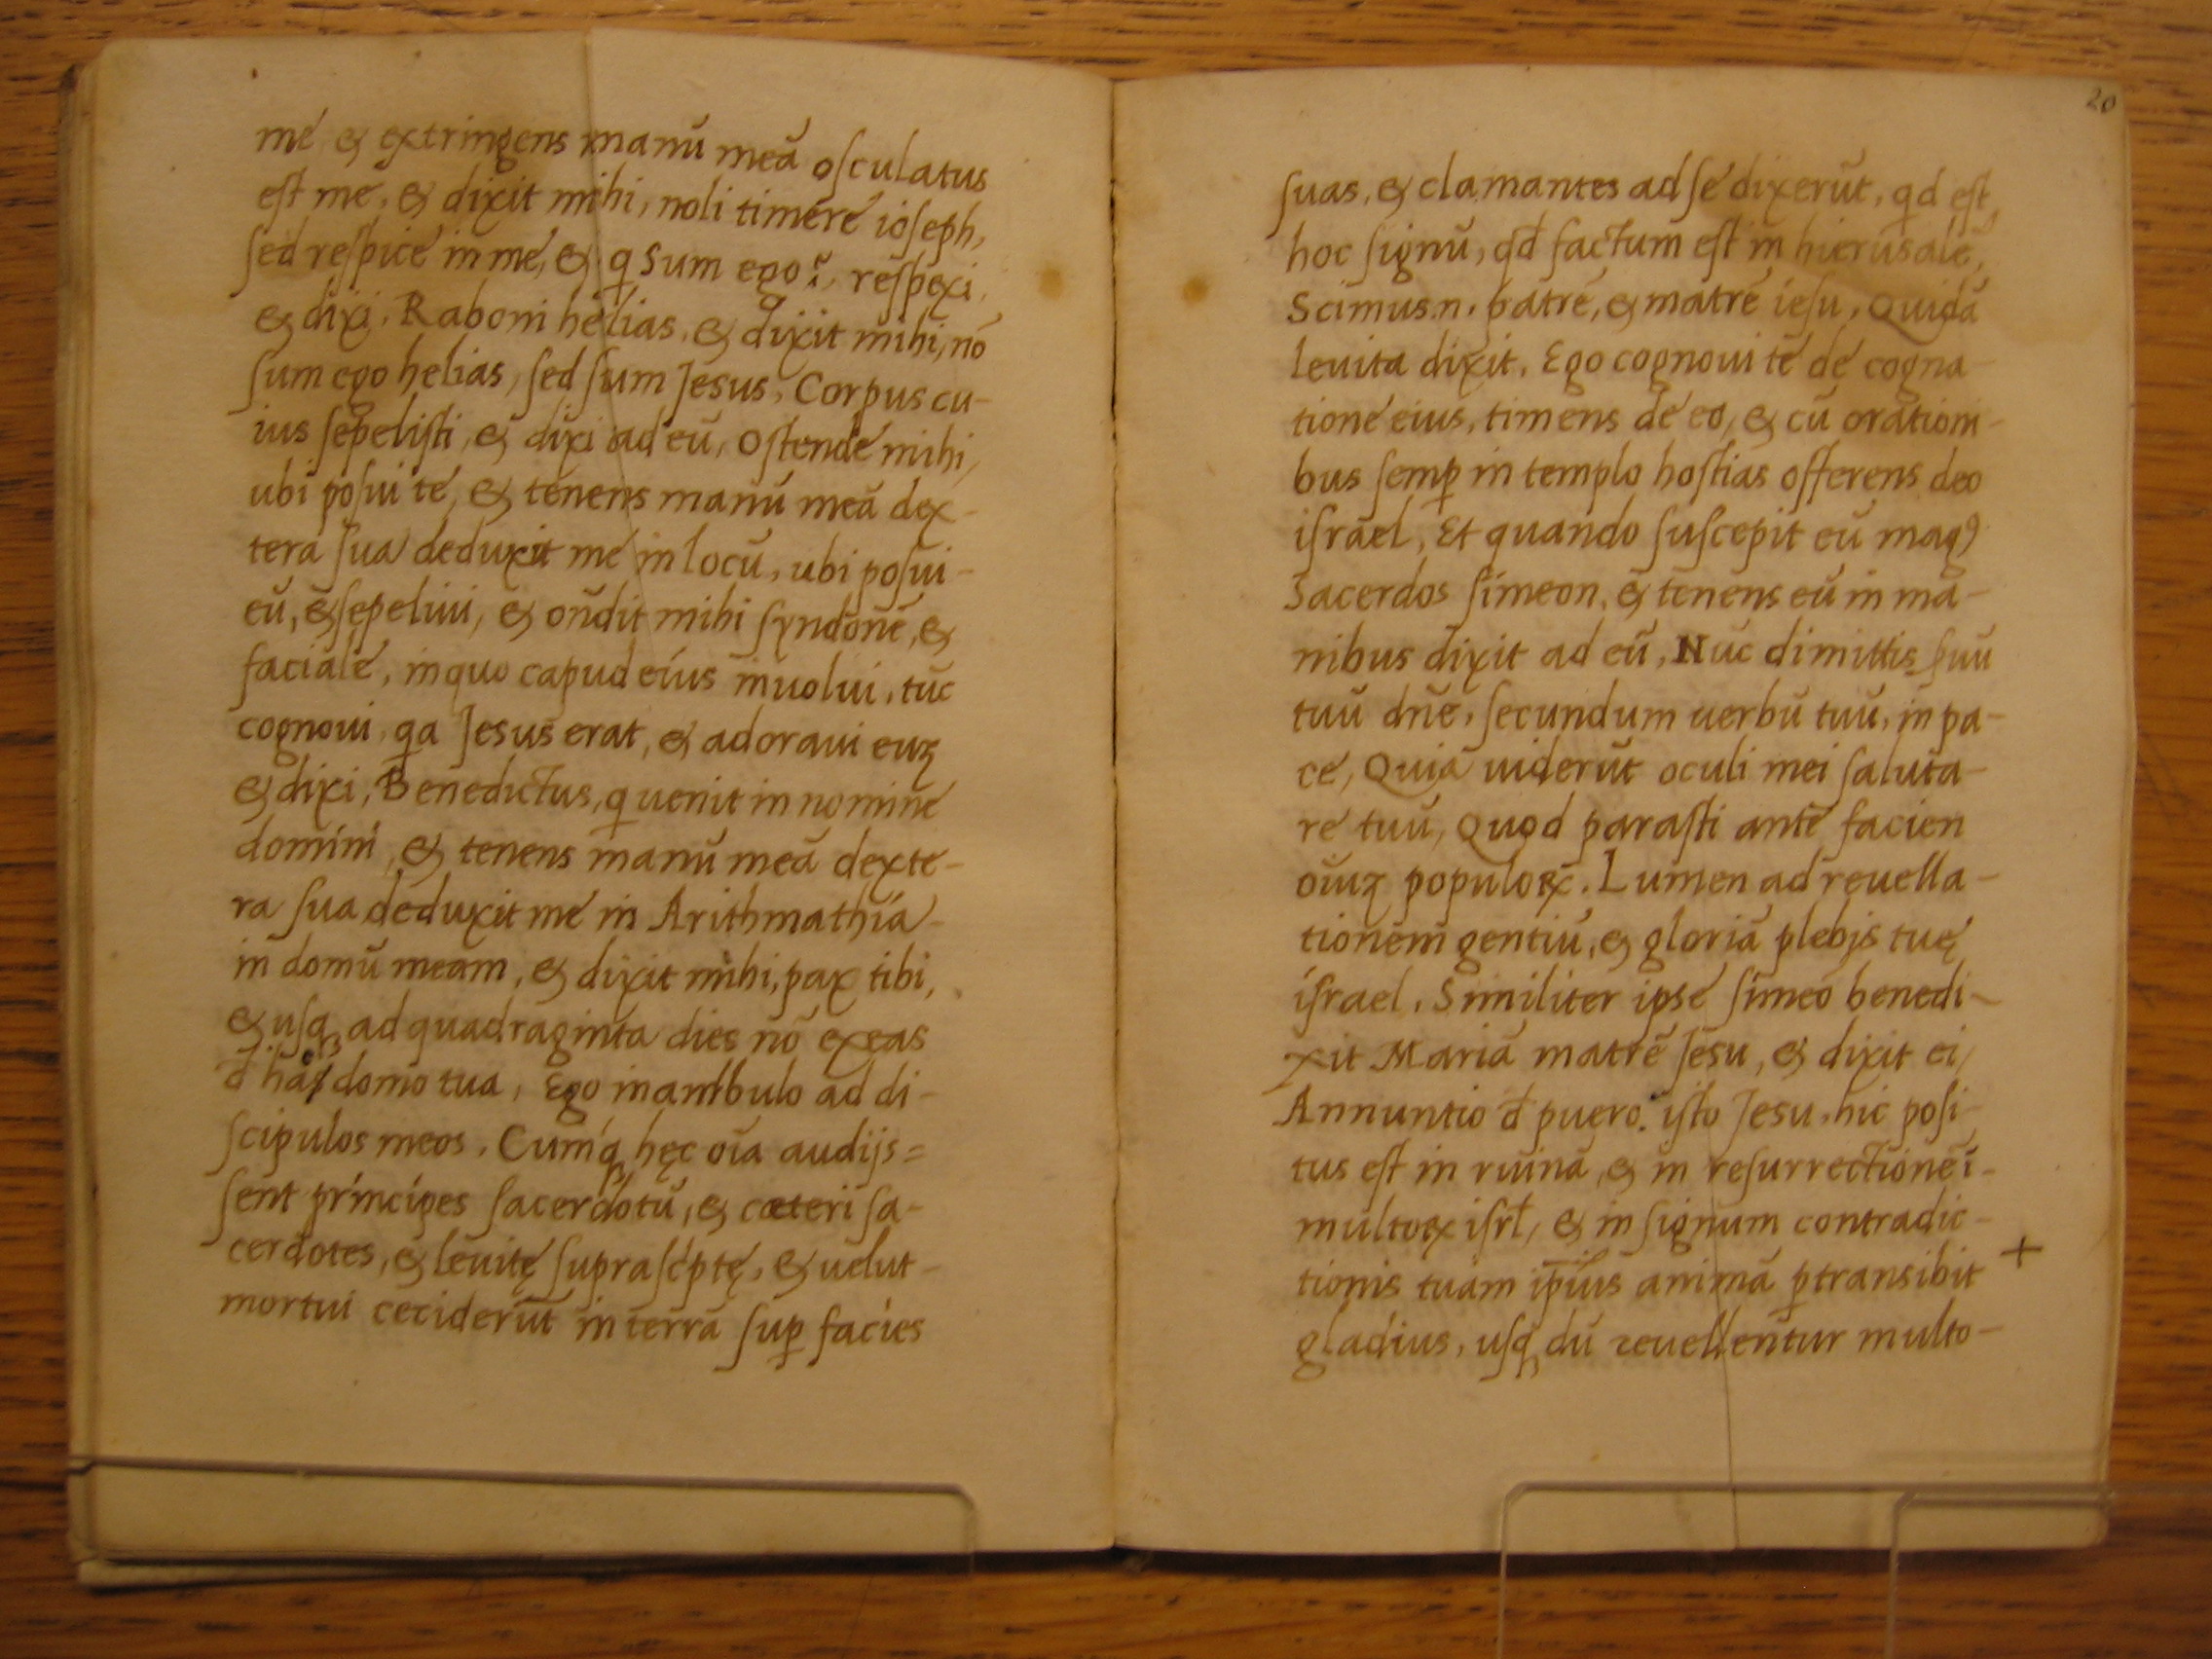 me & extringens manū meā osculatus
est me, & dixit mihi, noli timere ioseph,
sed respice in me, & q sum ego?, respexi,
& dixi, Raboni helias, & dixit mihi, nō
sum ego helias, sed sum Jesus, Corpus cu-
ius sepelisti, & dixi ad eū, ostende mihi,
ubi posui te, & tenens manū meā dex-
tera sua deduxit me in locū, ubi posui-
eū, & sepeliui, & oñdit mihi syndonē, &
faciale, in quo capud eius inuolui, tūc
cognoui, qa Jesus erat, & adoraui euꝫ
& dixi, Benedictus, q uenit in nomine
domini, & tenens manū meā dexte-
ra sua deduxit me in Arithmathia
in domū meam, & dixit mihi, pax tibi,
& usqꝫ ad quadraginta dies nō exeas
đ domo tua, Ego inambulo ad di-
scipulos meos. Cumqꝫ hęc oīa audijs=
sent principes sacerdotū, & cæteri sa-
cerdotes, & leuitę suprascʼptę, & uelut
mortui ceciderūt in terrā suꝑ facies
20
suas, & clamantes ad se dixerūt, qd est
hoc signū, qđ factum est in hierusalē,
Scimus.n. patrē, & matrē iesu, Quidā
leuita dixit, Ego cognoui te de cogna-
tione eius, timens de eo, & cū orationi-
bus semꝑ in templo hostias offerens deo
israel, Et quando suscepit eū magꝰ
Sacerdos simeon, & tenens eū in ma-
nibus dixit ad eū, Nūc dimittis suū
tuū dñe, secundum uerbū tuū, in pa-
ce, Quia uiderūt oculi mei saluta-
re tuū, Quod parasti ante facien
oīuꝫ populoꝝ. Lumen ad reuella-
tionem gentiū, & gloriā plebis tuę
israel. Similiter ipse simeō benedi-
xit Mariā matrē Jesu, & dixit ei,
Annuntio đ puero isto Jesu, hic posi-
tus est in ruinā, & in resurrectionē ī-
multoꝝ isrl, & in signum contradic-
tionis tuam ipīus animā ꝑtransibit +
gladius, usqꝫ dū reuellentur multo-